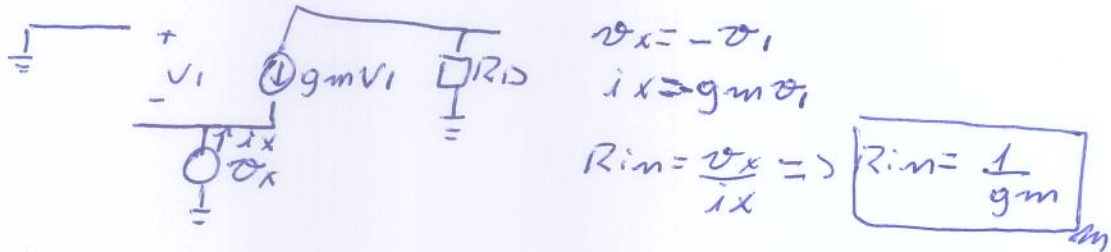 +
V1
-
gmV1
RD
ix
vx
vx = -v1
ix = gm v1
Rin = vx/ix => Rin = 1/gm